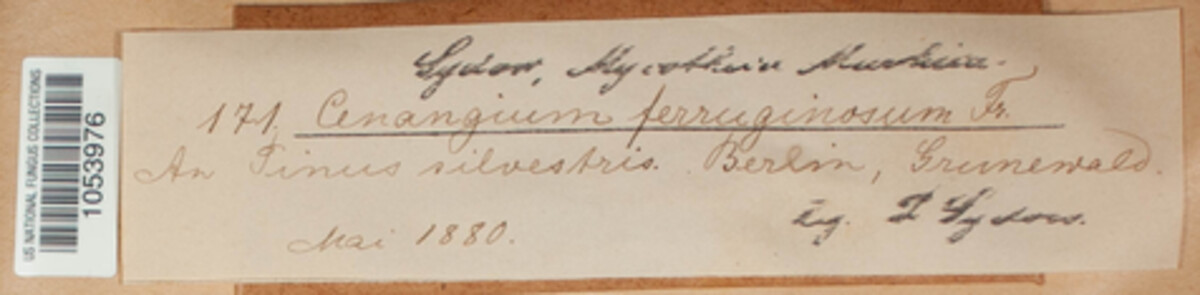 Sydow, Mycotheca Marchica.
171. Cenangium ferruginosum Fr.
An Pinus silvestris. Berlin, Grunewald.
Mai 1880.
Leg. P Sydow.
US NATIONAL FUNGUS COLLECTIONS
1053976